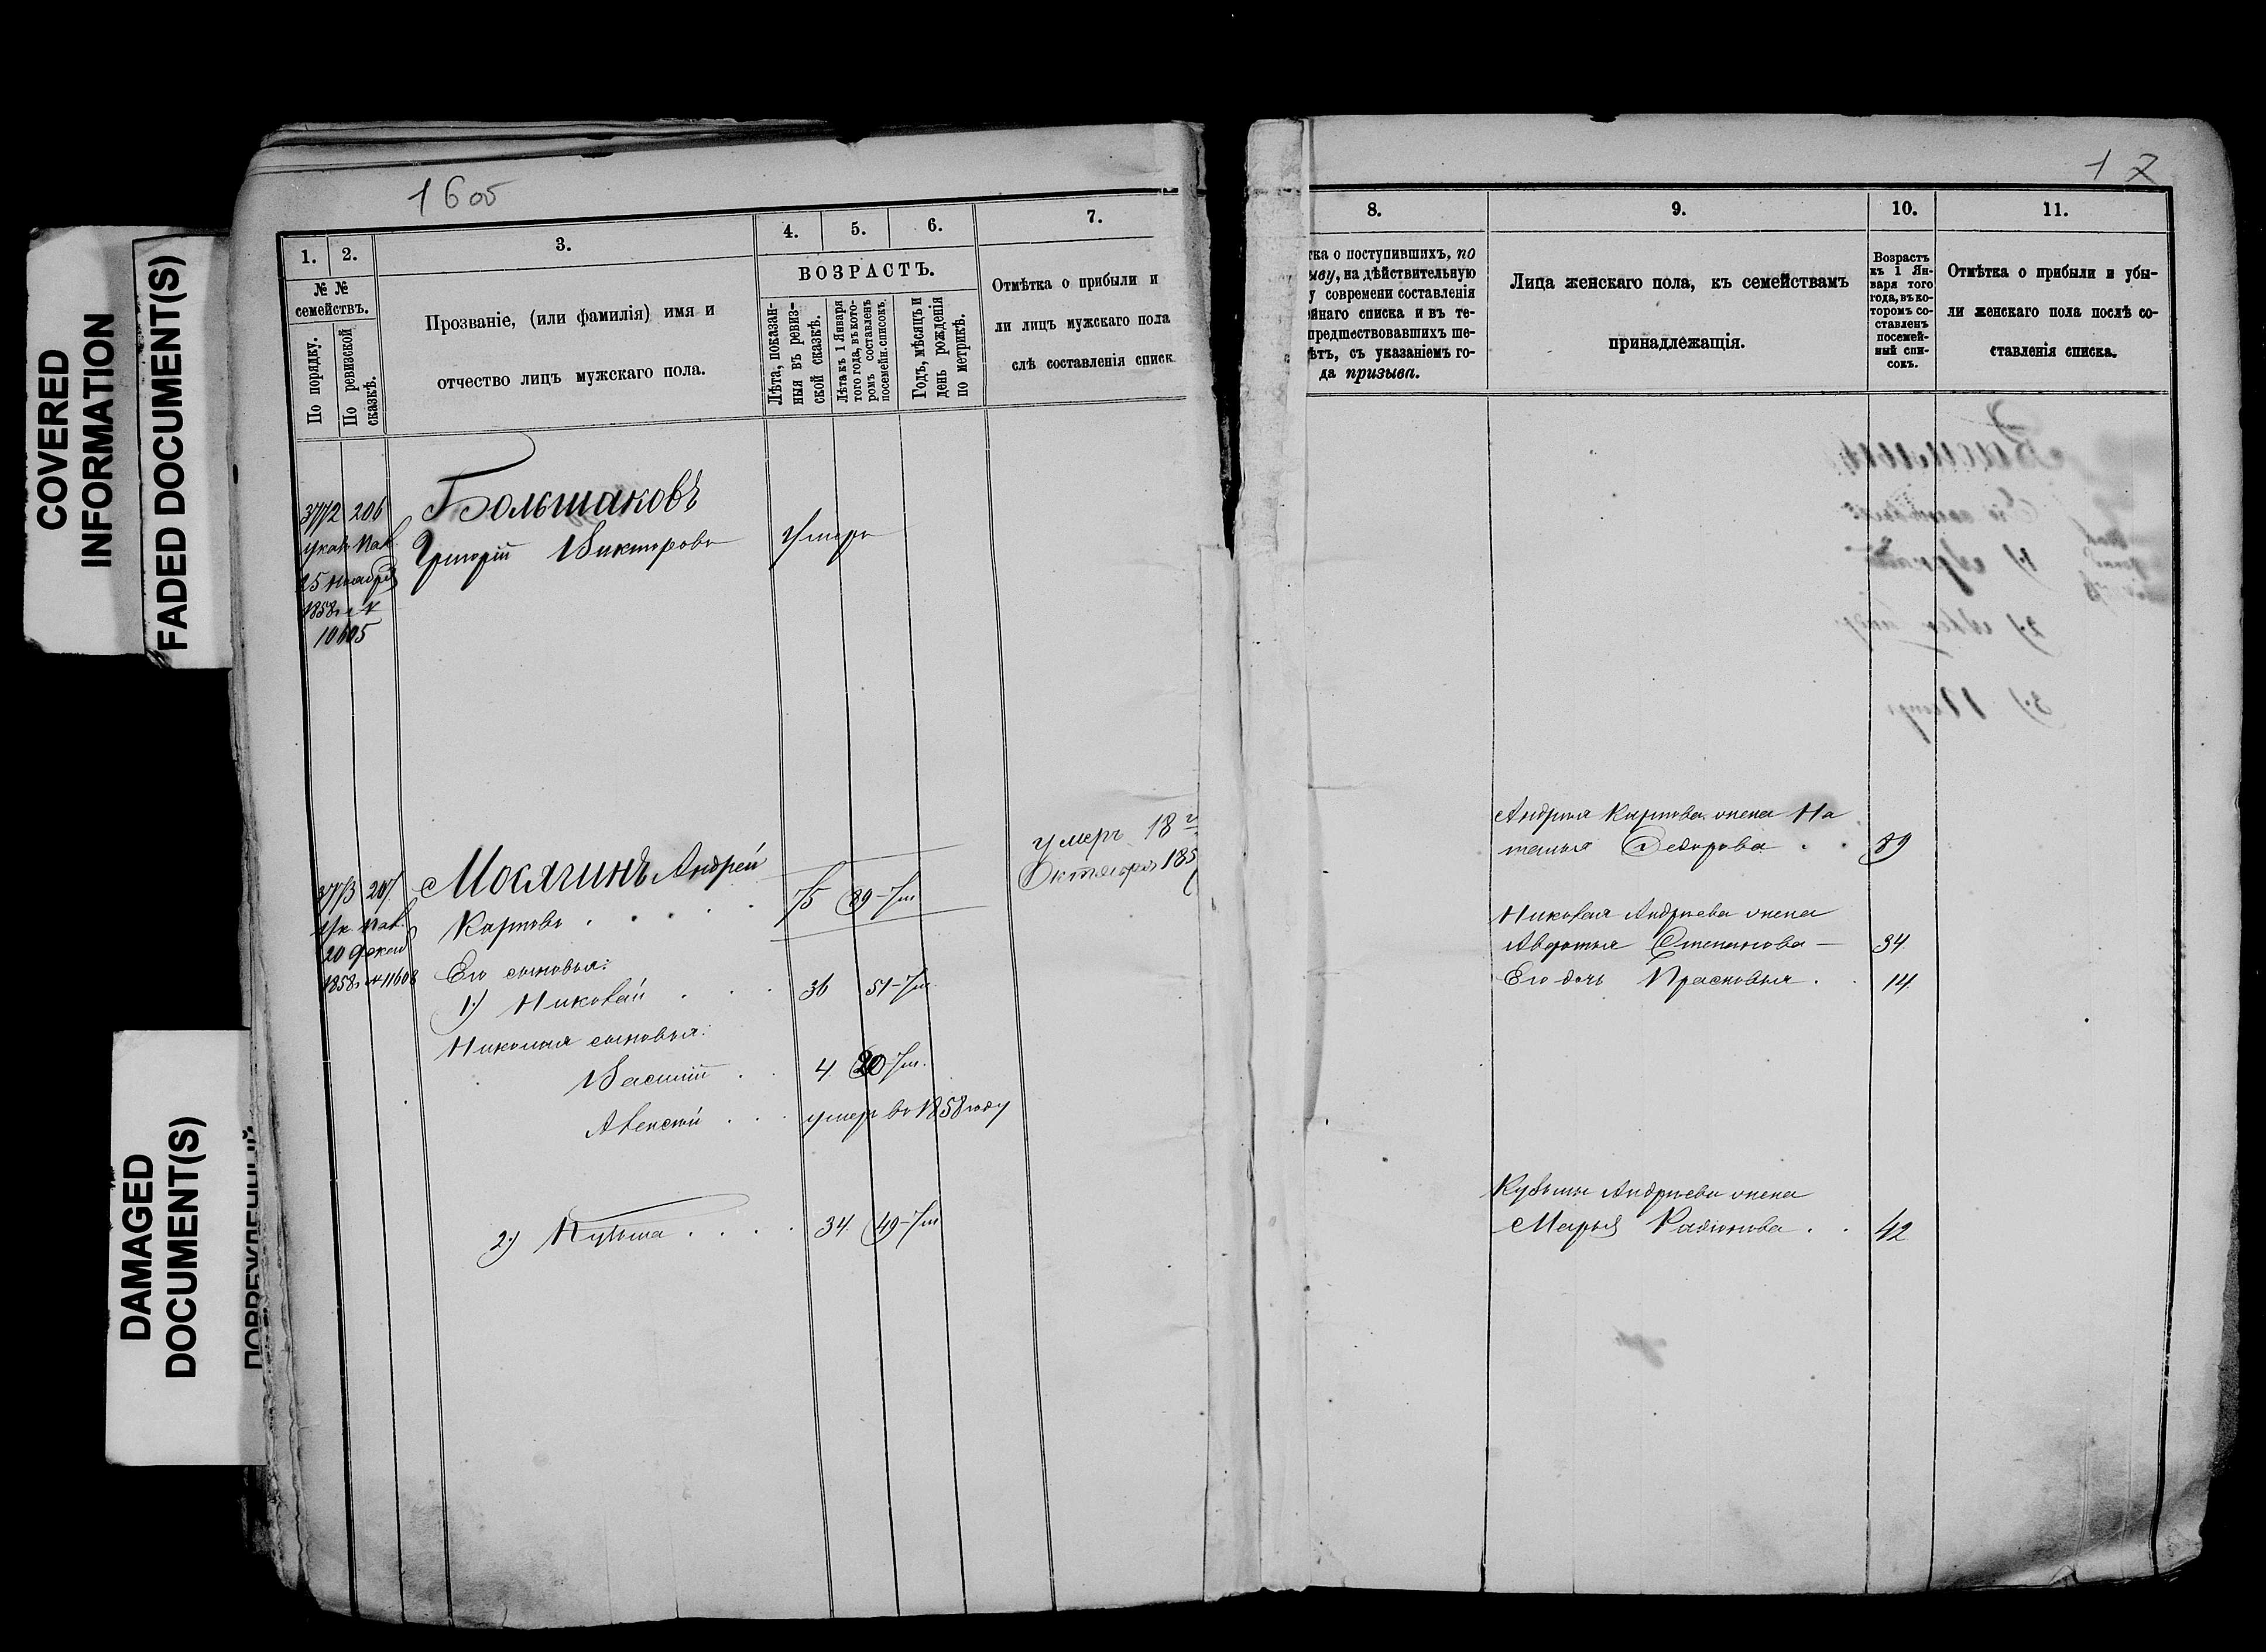 COVERED
INFORMATION
FADED DOCUMENT(S)
DAMAGED
DOCUMENT(S)
16об
1.
2.
3.
4.
5.
6.
7.
№ №
семействъ.
По порядку.
По ревизской
сказкѣ.
Прозваніе, (или фамилія) имя и
отчество лицъ мужскаго пола.
ВОЗРАСТЪ.
Лѣта, показан-
ныя въ ревиз-
ской сказкѣ.
Лѣта къ 1 Января
того года, въ кото-
ромъ составленъ
посемейн. списокъ.
Годъ, мѣсяцъ и
день рожденія
по метрикѣ.
Отмѣтка о прибыли и
ли лицъ мужскаго пола
слѣ составленія списк
3772 206
Указ. Пал.
25 Ноября
1858 г. №
10605
Большаковъ
Григорій Викторовъ
Умеръ
3773 207
Ук. Пал.
20 Декаб
1858 г. № 11608
Мосягинъ Андрей
Карповъ . . . . . 75 89-ти
умеръ 18 г
Октября 185
Его сыновья:
1) Николай . . . 36 51-ти
Николая сыновья:
Василій . . 4 20-ти.
Алексѣй . . . умеръ въ 1858 году
2) Кузьма . . . . 34 49-ти
17
8.
9.
10.
11.
тка о поступившихъ, по
ыву, на дѣйствительную
у современи составленія
йнаго списка и въ те-
предшествовавшихъ ше-
ѣтъ, съ указаніемъ го-
да призыва.
Лица женскаго пола, къ семействамъ
принадлежащія.
Возрастъ
къ 1 Ян-
варя того
года, въ ко-
торомъ со-
ставленъ
посемей-
ный спи-
сокъ.
Отмѣтка о прибыли и убы-
ли женскаго пола послѣ со-
ставленія списка.
Андрея Карпова жена На
талья Федорова . . 89
Николая Андреева жена
Авдотья Степанова — 34
Его дочь Прасковья . . 14
Кузьмы Андреева жена
Марья Радіонова . . 42